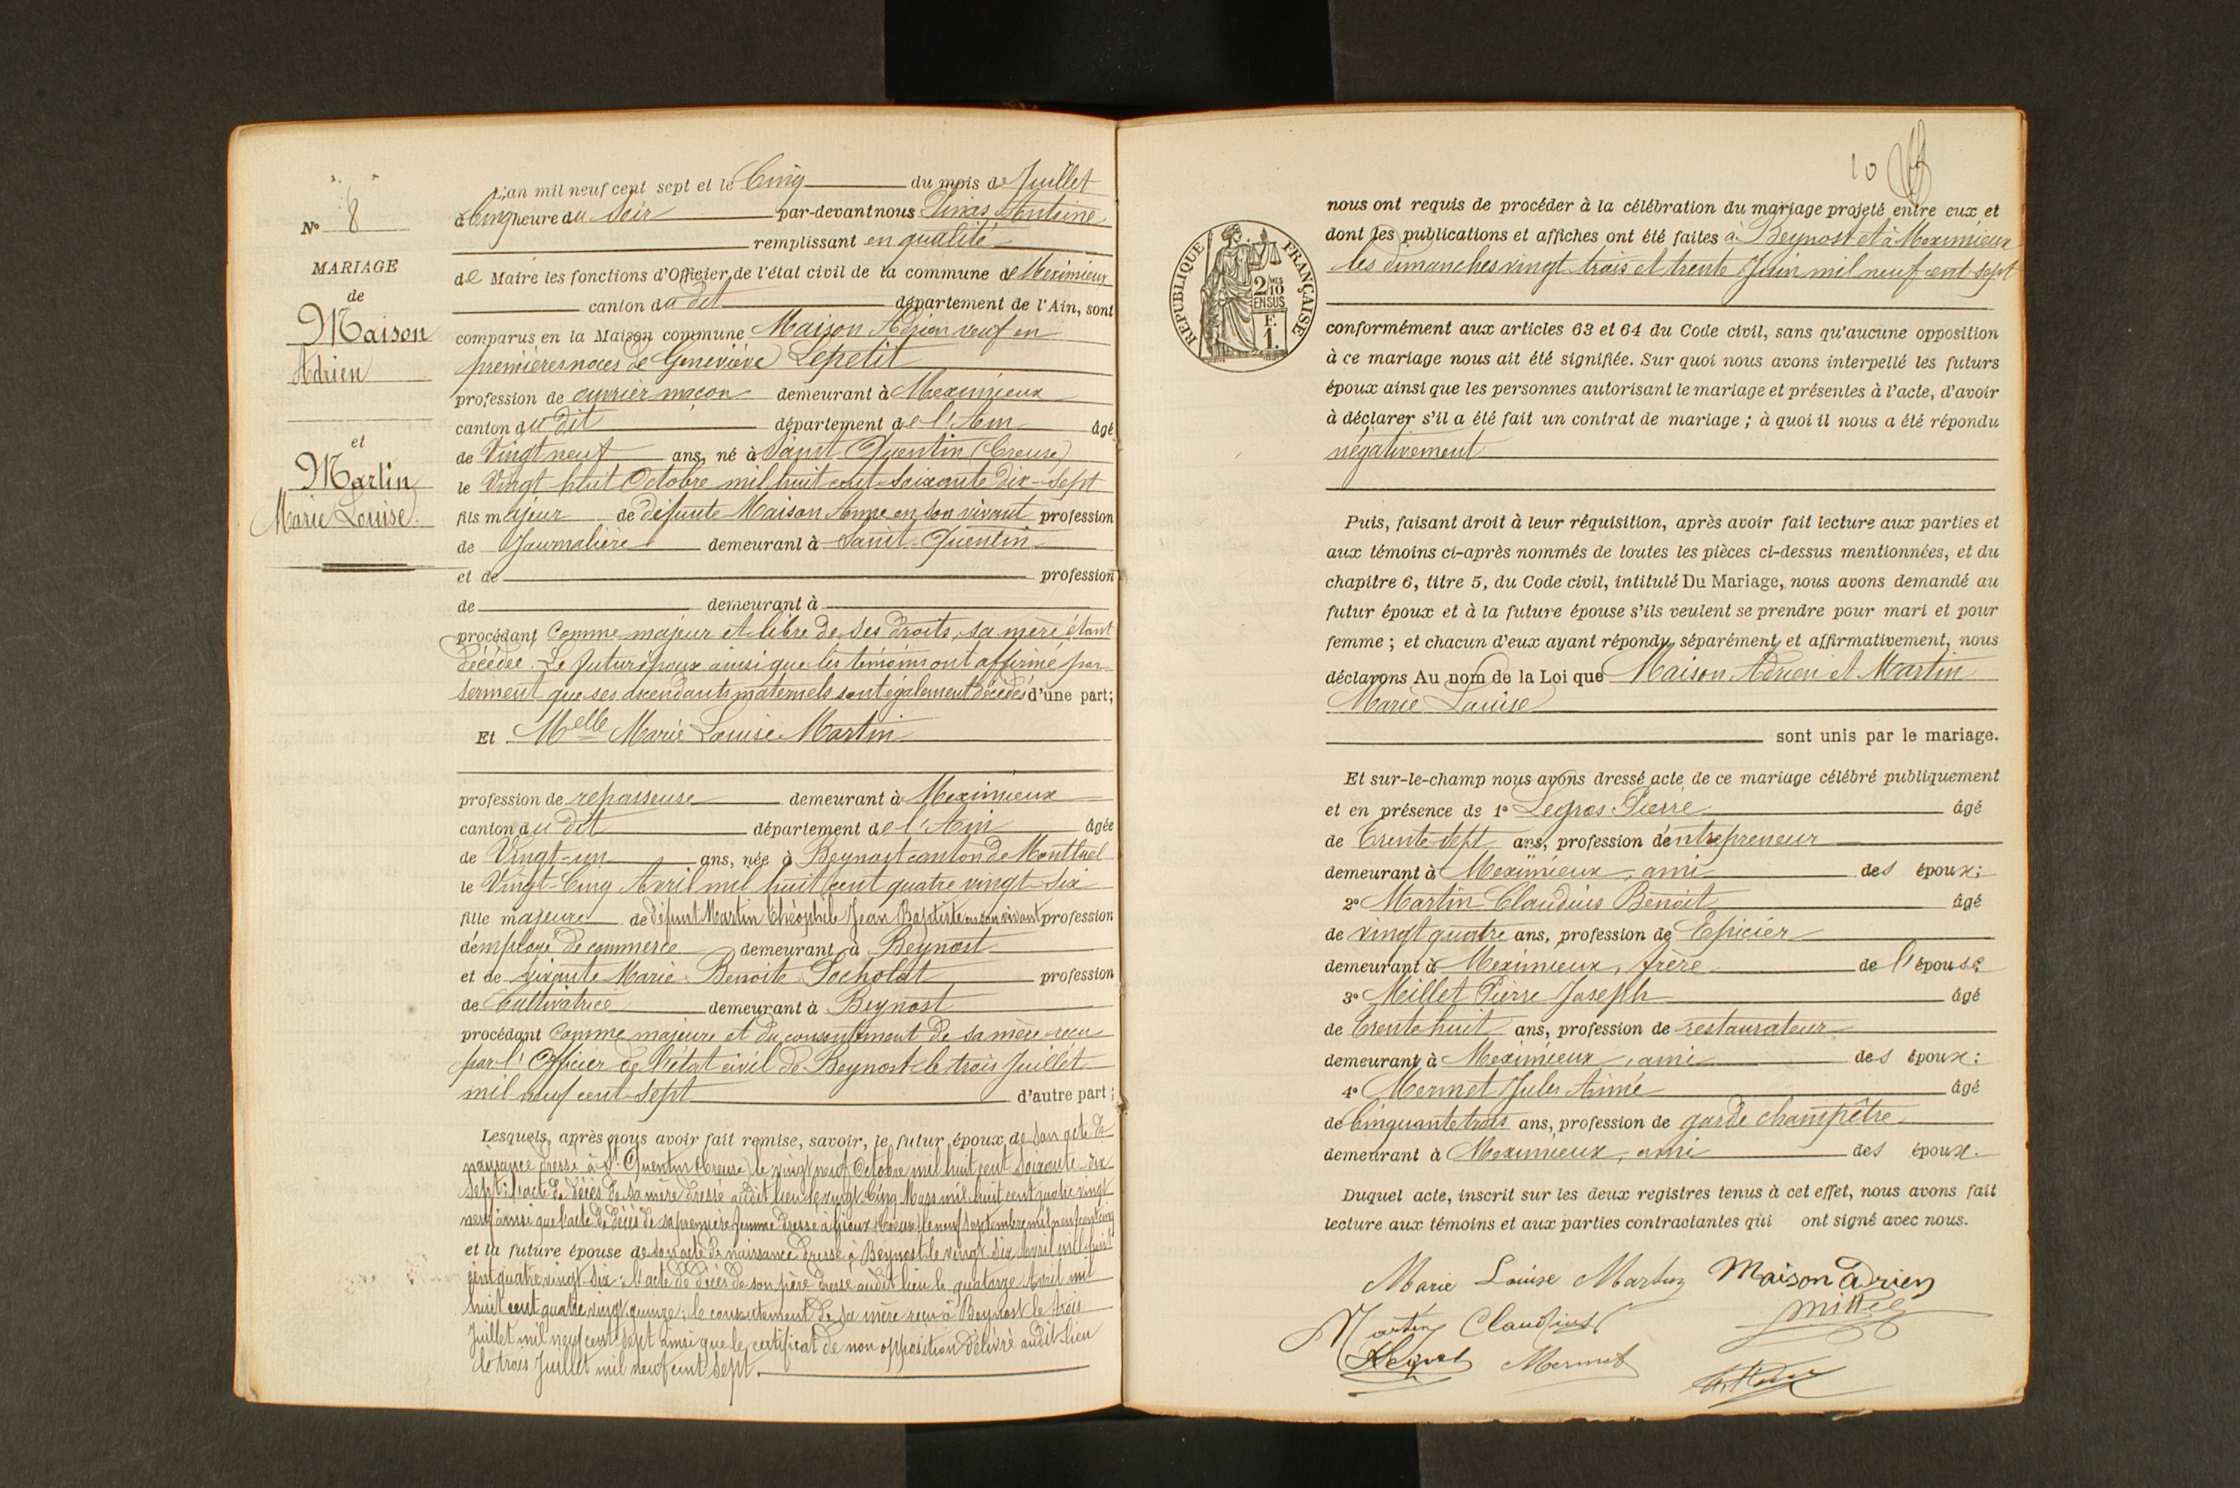 N° 8
MARIAGE
de
Maison
Adrien
et
Martin
Marie Louise.
L'an mil neuf cent sept et le Cinq du mois de Juillet
à Cinq heure du Soir par-devant nous Antoine
remplissant en qualité
de Maire les fonctions d'Officier de l'état civil de la commune de Meximieux
canton du dit département de l'Ain, sont
comparus en la Maison commune Maison Adrien veuf en
premières noces de Geneviève Lepetit
profession de ouvrier maçon demeurant à Meximieux
canton du dit département de l'Ain âgé
de Vingt neuf ans, né à Saint Quentin (Creuse)
le Vingt huit Octobre mil huit cent soixante dix-sept
fils majeur de défunte Maison Anne en son vivant profession
de Journalière demeurant à Saint-Quentin
et de profession
de demeurant à
procédant Comme majeur et libre de ses droits, sa mère étant
décédée. Le futur époux ainsi que les témoins ont affirmé par
serment que ses ascendants maternels sont également décédés d'une part;
Et Melle Marie Louise Martin
profession de repasseuse demeurant à Meximieux
canton du dit département de l'Ain âgée
de Vingt-un ans, née à Beynost canton de Montluel
le Vingt-Cinq Avril mil huit cent quatre vingt-six
fille majeure de défunt Martin Théophile Jean Baptiste en son vivant profession
d'employé de commerce demeurant à Beynost
et de vivante Marie Benoite Pocholat profession
de Cultivatrice demeurant à Beynost
procédant Comme majeure et du consentement de sa mère reçu
par l'Officier de l'état civil de Beynost le trois Juillet
mil neuf cent sept d'autre part;
Lesquels, après nous avoir fait remise, savoir, le futur époux de son acte de
naissance dressé à St Quentin (Creuse) le vingt neuf Octobre mil huit cent soixante-dix
sept; l'acte de décès de sa mère dressé audit lieu le vingt Cinq Mars mil huit cent quatre vingt
neuf ainsi que l'acte de décès de sa première femme dressé à (Creuse) le neuf Septembre mil neuf cent cinq
et la future épouse de son acte de naissance dressé à Beynost le vingt six Avril mil huit
cent quatre vingt-six: l'acte de décès de son père dressé audit lieu le quatorze Avril mil
huit cent quatre vingt quinze; le consentement de sa mère reçu à Beynost le trois
Juillet mil neuf cent sept ainsi que le certificat de non opposition délivré audit lieu
le trois Juillet mil neuf cent sept.
10
REPUBLIQUE FRANÇAISE
2/10 MES
EN SUS
F.
1.
nous ont requis de procéder à la célébration du mariage projeté entre eux et
dont les publications et affiches ont été faites à Beynost et à Meximieux
les dimanches vingt trois et trente Juin mil neuf cent sept
conformément aux articles 63 et 64 du Code civil, sans qu'aucune opposition
à ce mariage nous ait été signifiée. Sur quoi nous avons interpellé les futurs
époux ainsi que les personnes autorisant le mariage et présentes à l'acte, d'avoir
à déclarer s'il a été fait un contrat de mariage; à quoi il nous a été répondu
négativement
Puis, faisant droit à leur réquisition, après avoir fait lecture aux parties et
aux témoins ci-après nommés de toutes les pièces ci-dessus mentionnées, et du
chapitre 6, titre 5, du Code civil, intitulé Du Mariage, nous avons demandé au
futur époux et à la future épouse s'ils veulent se prendre pour mari et pour
femme; et chacun d'eux ayant répondu séparément et affirmativement, nous
déclarons Au nom de la Loi que Maison Adrien et Martin
Marie Louise
sont unis par le mariage.
Et sur-le-champ nous avons dressé acte de ce mariage célébré publiquement
et en présence de 1° Legros Pierre âgé
de Trente-sept ans, profession d'entrepreneur
demeurant à Meximieux, ami des époux;
2° Martin Claudius Benoit âgé
de vingt quatre ans, profession de Epicier
demeurant à Meximieux, frère de l'épouse
3° Millet Pierre Joseph âgé
de trente huit ans, profession de restaurateur
demeurant à Meximieux, ami des époux;
4° Mermet Jules Aimé âgé
de Cinquante trois ans, profession de garde champêtre
demeurant à Meximieux, ami des époux.
Duquel acte, inscrit sur les deux registres tenus à cet effet, nous avons fait
lecture aux témoins et aux parties contractantes qui ont signé avec nous.
Marie Louise Martin Maison Adrien
Martin Claudius Millet
Mermet